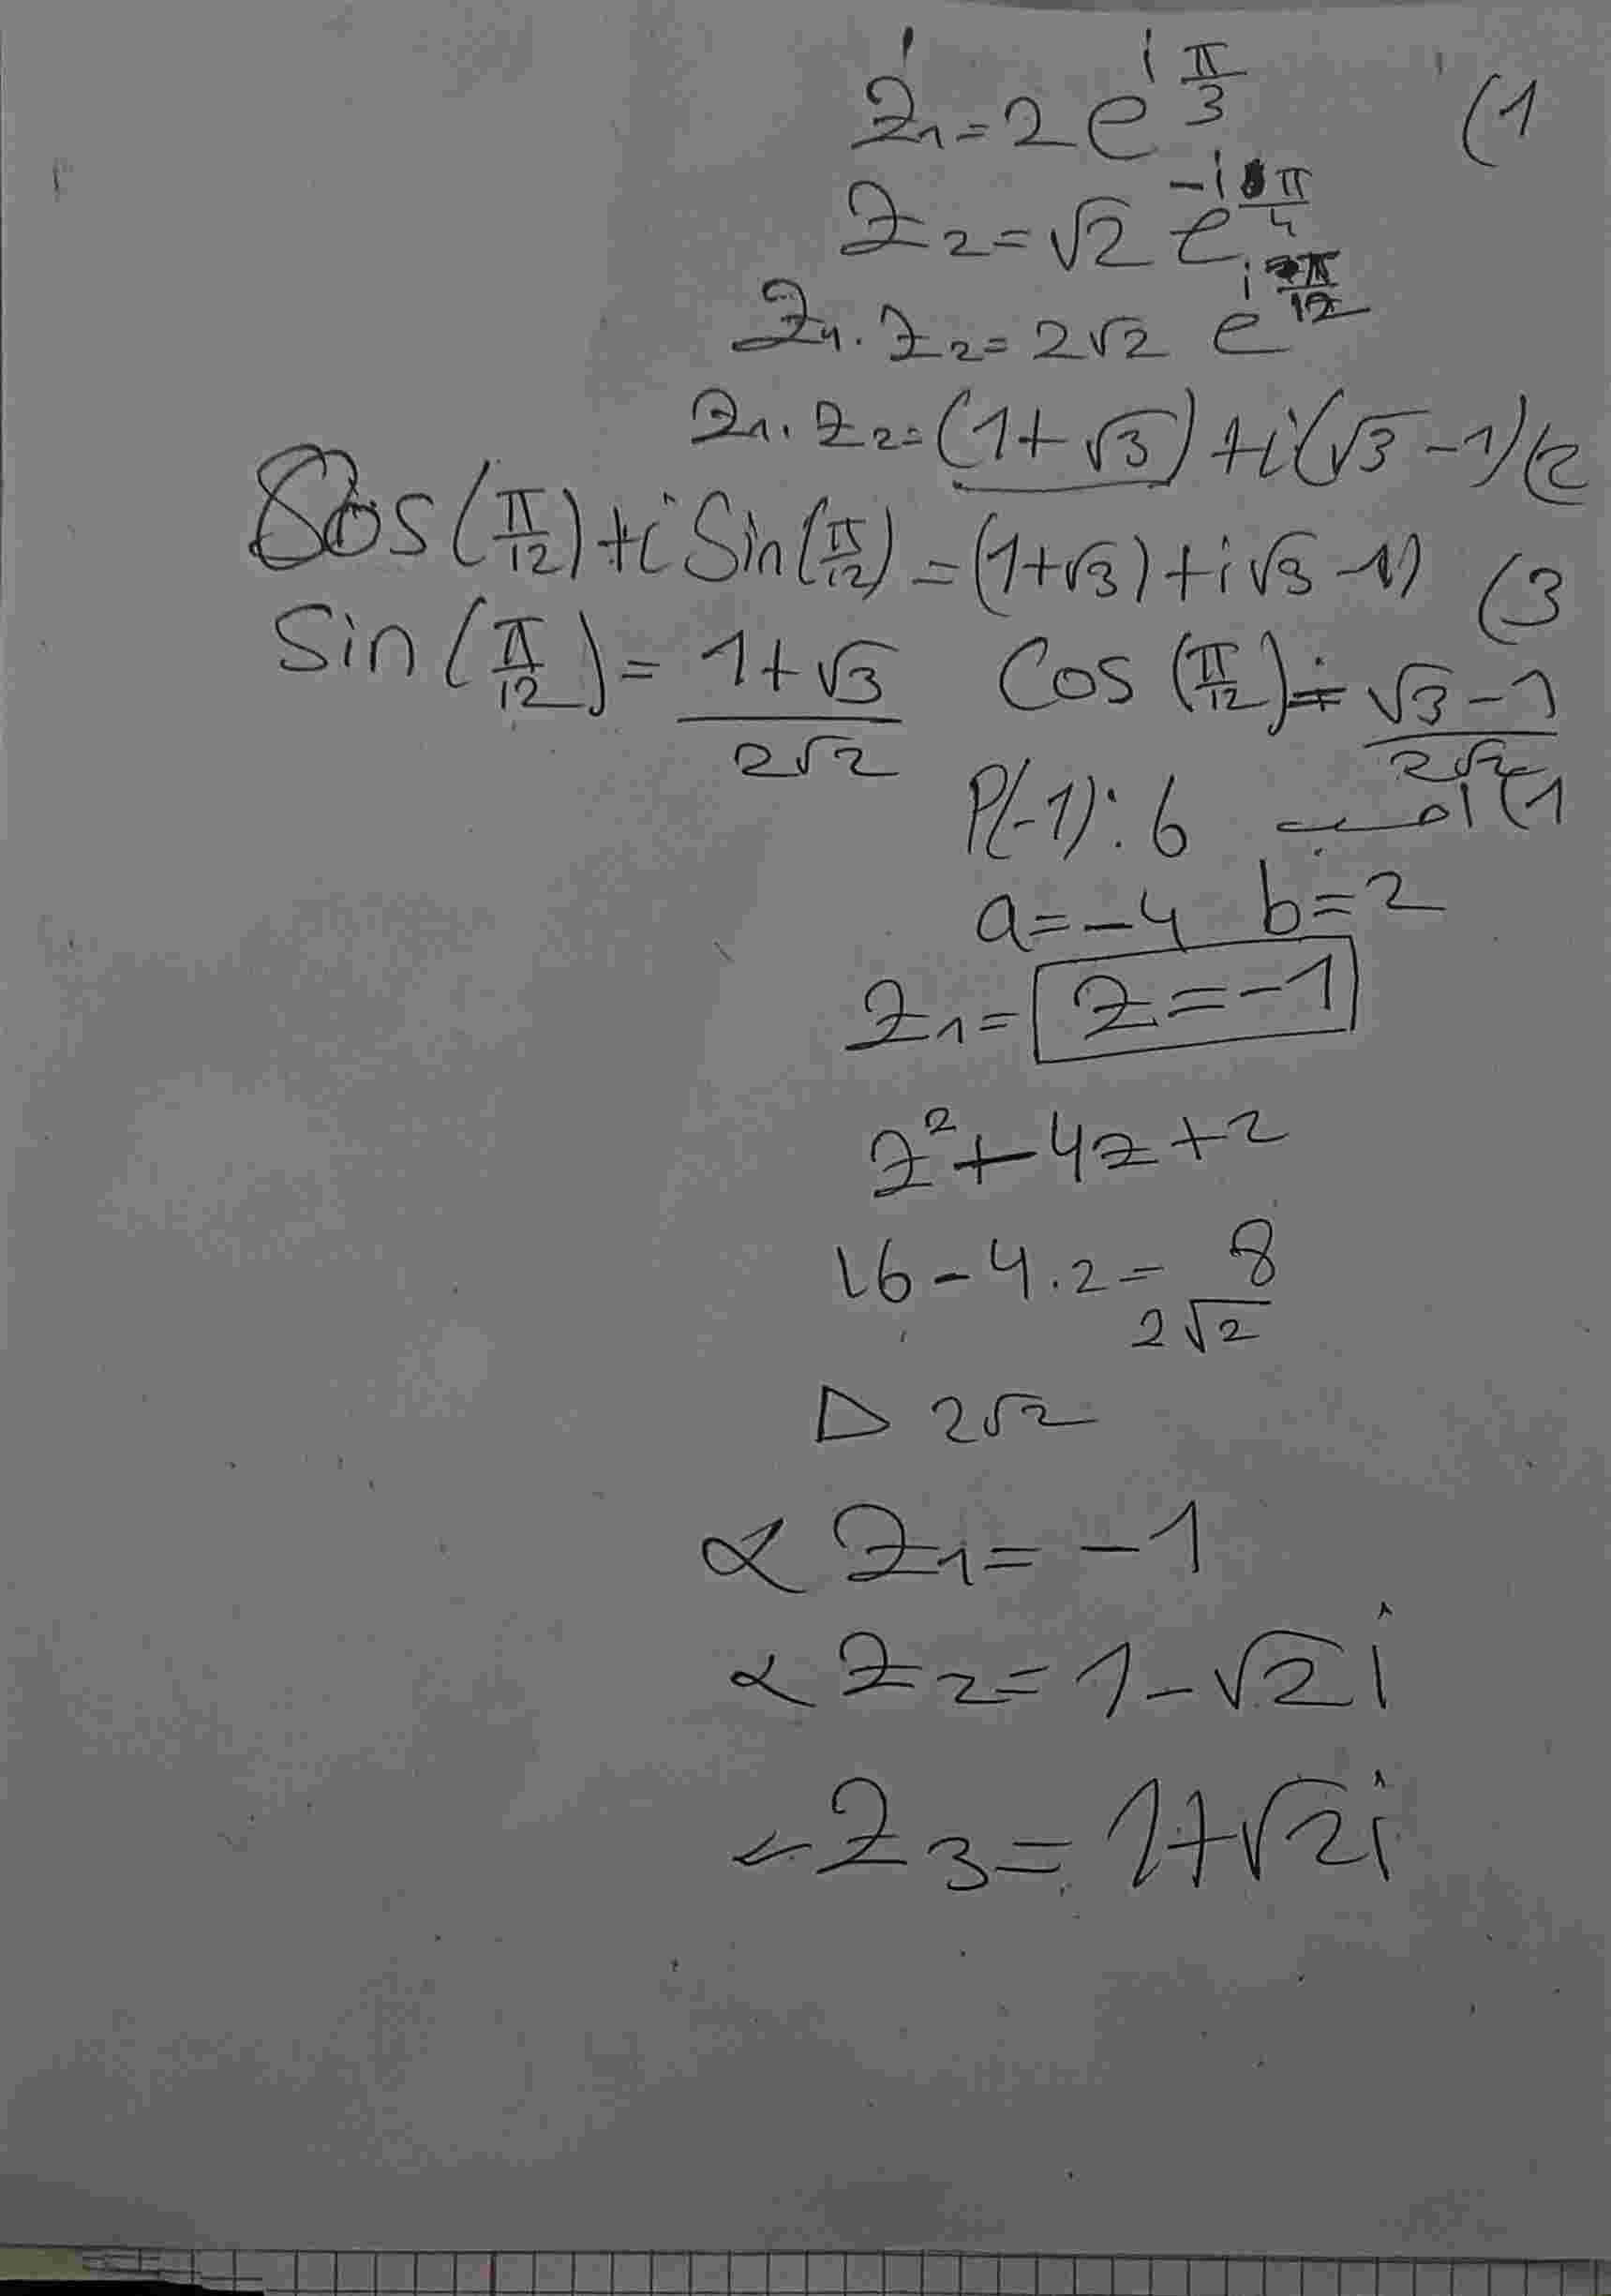 1) z₁ = 2 e^{i π/3}
z₂ = √2 e^{-i π/4}
z₁ . z₂ = 2√2 e^{i π/12}
2) z₁ . z₂ = (1+√3) + i(√3 -1)
3) Cos(π/12) + i Sin(π/12) = (1+√3) + i√3 -1)
Sin(π/12) = (1+√3)/(2√2) Cos(π/12) = (√3 -1)/(2√2)
1) احسب P(-1): 6
a = -4 b = 2
z₁ = z = -1
z² + 4z + 2
16 - 4 . 2 = 8
2√2
Δ 2√2
z₁ = -1
z₂ = 1 - √2 i
z₃ = 1 + √2 i